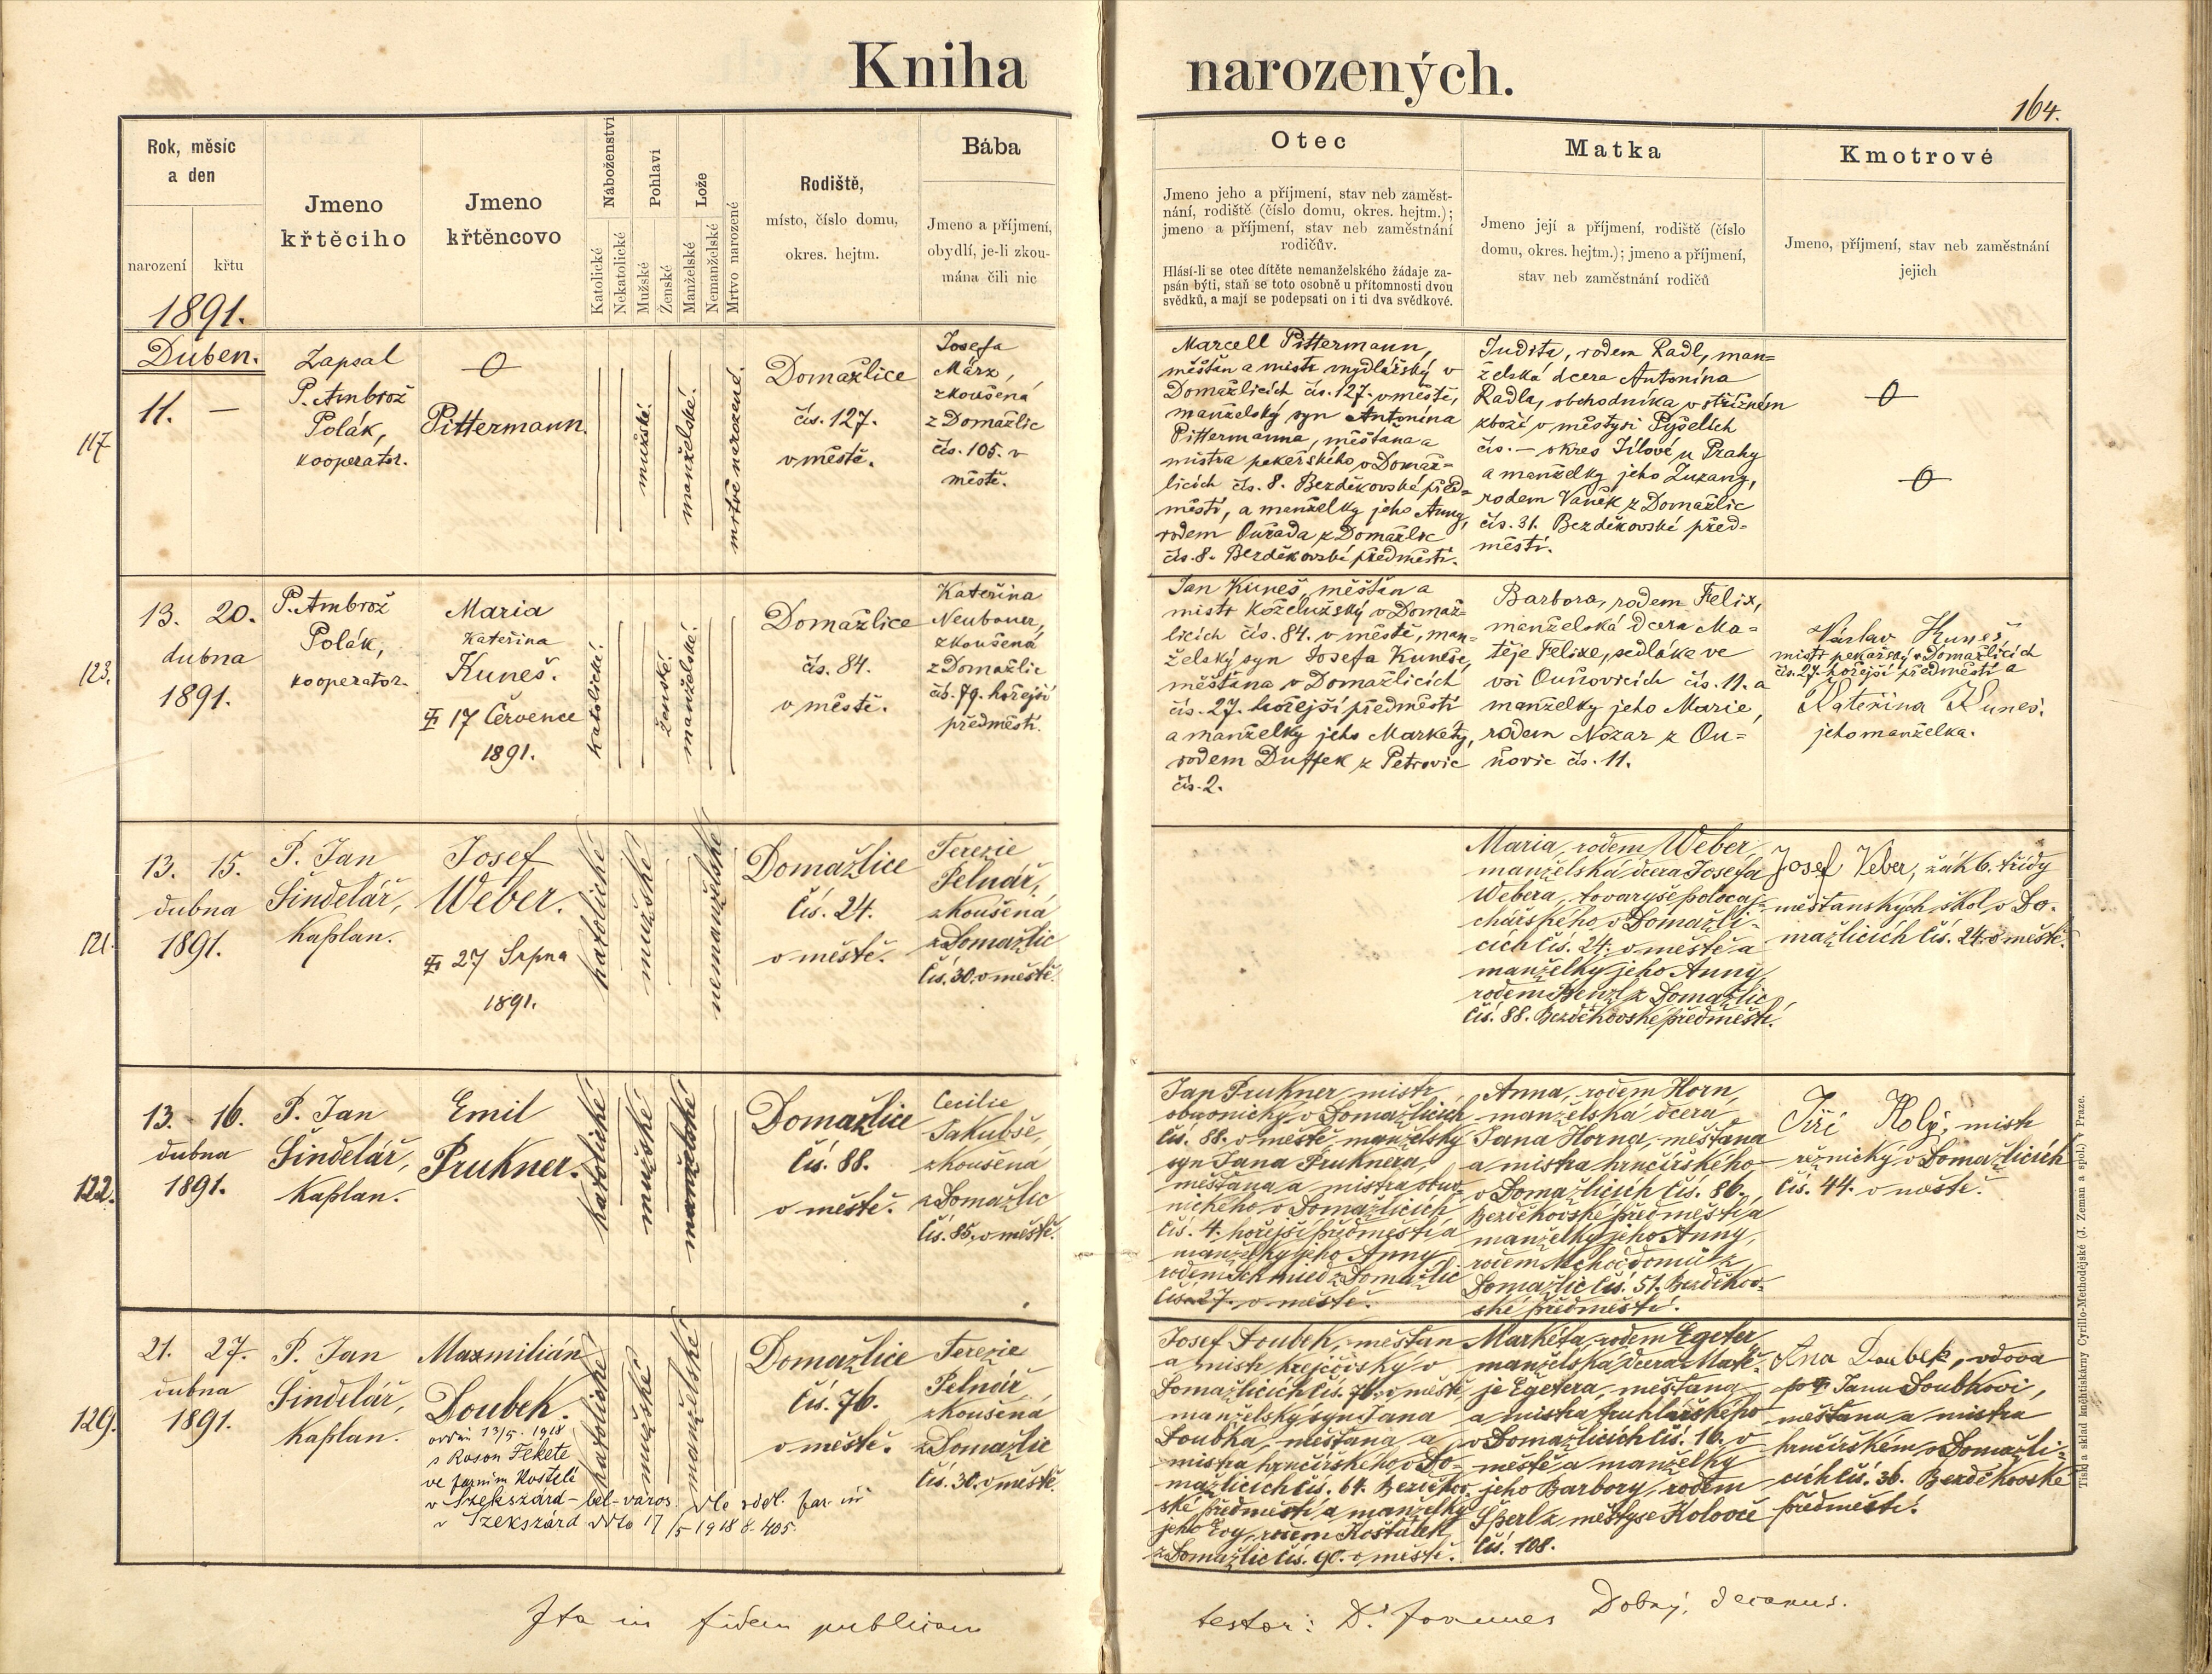 Kniha narozených.
164.
Rok, měsíc
a den
narození
křtu
Jmeno
křtěcího
Jmeno
křtěncovo
Náboženství
Katolické
Nekatolické
Pohlaví
Mužské
Ženské
Lože
Manželské
Nemanželské
Mrtvo narozené
Rodiště,
místo, číslo domu,
okres. hejtm.
Bába
Jmeno a příjmení,
obydlí, je-li zkou-
mána čili nic
Otec
Jmeno jeho a příjmení, stav neb zaměst-
nání, rodiště (číslo domu, okres. hejtm.);
jmeno a příjmení, stav neb zaměstnání
rodičův.
Hlásí-li se otec dítěte nemanželského žádaje za-
psán býti, staň se toto osobně u přítomnosti dvou
svědků, a mají se podepsati on i ti dva svědkové.
Matka
Jmeno její a příjmení, rodiště (číslo
domu, okres. hejtm.); jmeno a příjmení,
stav neb zaměstnání rodičů
Kmotrové
Jmeno, příjmení, stav neb zaměstnání
jejich
1891.
Duben.
117
11. —
Zapsal
P. Ambrož
Polák,
kooperator.
Pittermann.
mužské.
manželské.
mrtvě narozené.
Domažlice
čís. 127.
v městě.
Josefa
März,
zkoušená
z Domažlic
čís. 105. v
městě.
Marcell Pittermann,
měšťan a mistr mydlářský v
Domažlicích čís. 127. v městě,
manželský syn Antonína
Pittermanna, měšťana a
mistra pekařského v Domaž=
licích čís. 8. Bezděkovské před=
městí, a manželky jeho Anny,
rodem Ouřada z Domažlic
čís. 8. Bezděkovské předměstí.
Judita, rodem Radl, man=
želská dcera Antonína
Radla, obchodníka v střižném
zboží v městysi Pyšelích
čís. — okres Jílové u Prahy
a manželky jeho Zuzany,
rodem Vaněk z Domažlic
čís. 31. Bezděkovské před=
městí.
123.
13. 20.
dubna
1891.
P. Ambrož
Polák,
kooperator.
Maria
Kateřina
Kuneš.
17 Července
1891.
katolické.
ženské.
manželské.
Domažlice
čís. 84.
v městě.
Kateřina
Neubauer,
zkoušená
z Domažlic
čís. 79. hořejší
předměstí.
Jan Kuneš, měšťan a
mistr koželužský v Domaž=
licích čís. 84. v městě, man=
želský syn Josefa Kuneše,
měšťana v Domažlicích
čís. 27. hořejší předměstí
a manželky jeho Markéty,
rodem Duffek z Petrovic
čís. 2.
Barbora, rodem Felix,
manželská dcera Ma=
těje Felixe, sedláka ve
vsi Ouňovicích čís. 11. a
manželky jeho Marie,
rodem Nozar z Ou=
ňovic čís. 11.
Václav Kuneš
mistr pekařský v Domažlicích
čís. 27. hořejší předměstí a
Kateřina Kuneš.
jeho manželka.
121.
13. 15.
dubna
1891.
P. Jan
Šindelář,
Kaplan.
Josef
Weber.
27 Srpna
1891.
katolické
mužské
nemanželské
Domažlice
čís. 24.
v městě.
Terezie
Pelnář,
zkoušená
z Domažlic
čís. 30. v městě.
Maria, rodem Weber,
manželská dcera Josefa
Webera, tovaryše
v Domažli-
cích čís. 24. v městě a
manželky jeho Anny,
rodem z Domažlic
čís. 88. Bezděkovské předměstí.
Josef Veber, žák 6. třídy
měšťanských škol v Do-
mažlicích čís. 24. v městě.
122.
13. 16.
dubna
1891.
P. Jan
Šindelář,
Kaplan.
Emil
Prukner.
katolické
mužské
manželské
Domažlice
čís. 88.
v městě.
Cecilie
Jakubše,
zkoušená
z Domažlic
čís. 85. v městě.
Jan Prukner, mistr
obuvnický v Domažlicích
čís. 88. v městě, manželský
syn Jana Pruknera,
měšťana a mistra obuv-
nického v Domažlicích
čís. 4. hořejší předměstí a
manželky jeho Anny,
rodem Schmied z Domažlic
čís. 27. v městě.
Anna, rodem Horn,
manželská dcera
Jana Horna, měšťana
a mistra hrnčířského
v Domažlicích čís. 86.
Bezděkovské předměstí a
manželky jeho Anny,
rodem z
Domažlic čís. 51. Bezděkov-
ské předměstí.
Jiří Holý, mistr
řeznický v Domažlicích
čís. 44. v městě.
129.
21. 27.
dubna
1891.
P. Jan
Šindelář,
Kaplan.
Maxmilián
Doubek.
oddán 13/5. 1918
s Fekete
ve farním Kostele
v Szekszárd – bel-város. dle
v Szekszárd ddto 17/5 1918 č. 405.
katolické
mužské
manželské
Domažlice
čís. 76.
v městě.
Terezie
Pelnář,
zkoušená
z Domažlic
čís. 30. v městě.
Josef Doubek, měšťan
a mistr krejčovský v
Domažlicích čís. 76. v městě,
manželský syn Jana
Doubka, měšťana a
mistra hrnčířského v Do-
mažlicích čís. 64. Bezděkov-
ské předměstí a manželky
jeho Evy, rodem Košťálek
z Domažlic čís. 90. v městě.
Markéta, rodem Egeter,
manželská dcera Matě-
je Egetera, měšťana
a mistra truhlářského
v Domažlicích čís. 16. v
městě a manželky
jeho Barbory, rodem
Šperl z městyse Koloveč
čís. 108.
Ana Doubek, vdova
po † Janu Doubkovi,
měšťanu a mistra
hrnčířském v Domažli-
cích čís. 36. Bezděkovské
předměstí.
Ita in fidem publicam
testor: Dr. Joannes Dobrý, decanus.
Tisk a sklad knihtiskárny Cyrillo-Methodějské (J. Zeman a spol.) v Praze.